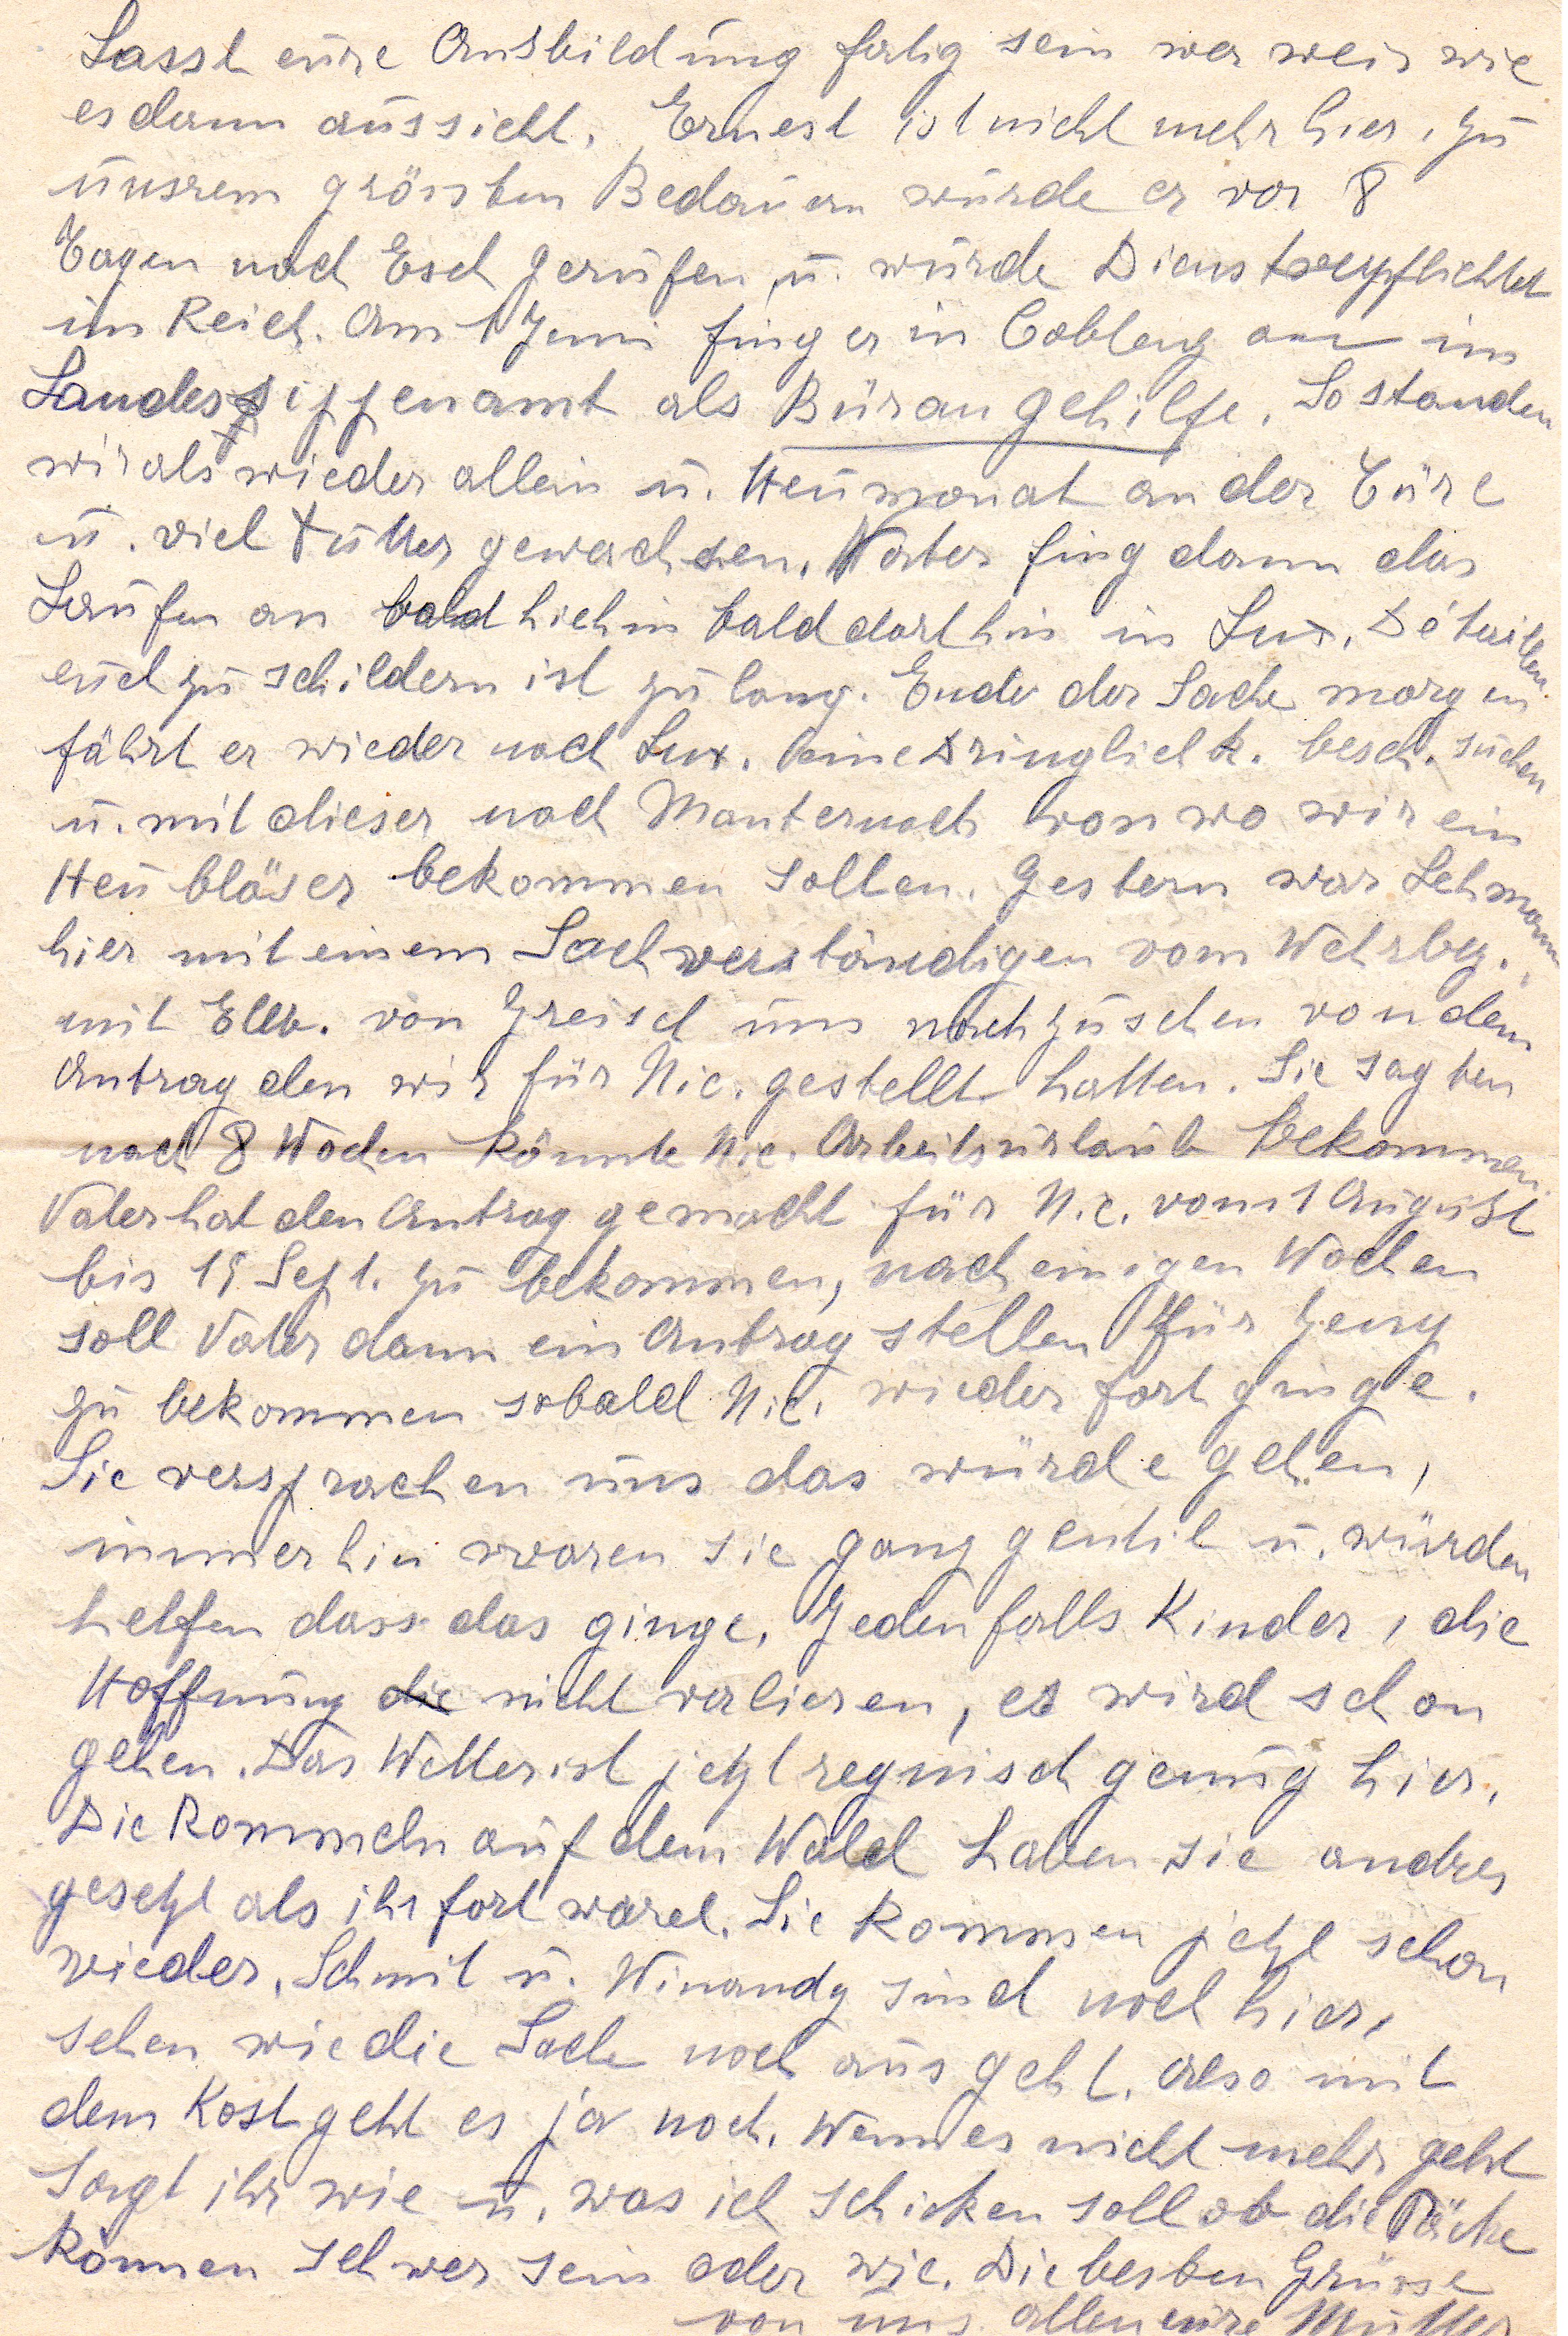 Lasst eure Ausbildung fertig sein wer weis wie
es dann aussieht. Ernest ist nicht mehr hier, zu
unsrem grössten Bedauern wurde er vor 8
Tagen nach Esch gerufen u. wurde Dienstverpflichtet
im Reich. Am 1 Juni fing er in Coblenz an im
Landessippenamt als Büraugehilfe. So standen
wir als wieder allein u. Heumonat an der Türe
u. viel Futter gewachsen. Vater fing dann das
Laufen an bald hiehin bald dorthin in Lux. Détailen
euch zu schildern ist zu lang. Ende der Sache morgen
fährt er wieder nach Lux. eine Dringlichk. besch. suchen
u. mit dieser nach Manternach von wo wir ein
Heubläser bekommen sollen. Gestern war Lehmann
hier mit einem Sachverständigen vom Wehrbez.
mit Ellb. von Greisch uns nachzusehen von dem
Antrag den wir für Nic. gestellt hatten. Sie sagten
nach 8 Wochen könnte Nic. Arbeitsurlaub bekommen.
Vater hat den Antrag gemacht für Nic. vom 1 August
bis 15 Sept. zu bekommen, nach einigen Wochen
soll Vater dann ein Antrag stellen für Jeng
zu bekommen sobald Nic. wieder fort ginge.
Sie versprachen uns das würde gehen,
immerhin waren sie ganz gentil u. würden
helfen dass das ginge. Jedenfalls Kinder, die
Hoffnung die nicht verlieren, es wird schon
gehen. Das Wetter ist jetzt regnisch genug hier.
Die Rommeln auf dem Wald haben sie andres
gesetzt als ihr fort waret. Sie kommen jetzt schon
wieder. Schmit u. Winandy sind noch hier,
sehen wie die Sache noch aus geht. Also mit
dem Kost geht es ja noch. Wenn es nicht mehr geht
sagt ihr wie u. was ich schicken soll ob die Päcke
können schwer sein oder wie. Die besten Grüsse
von uns allen eure Mutter